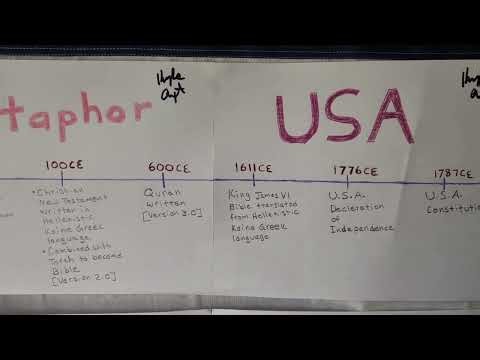 taphor
USA
100CE
• Christian
New Testament
written in
Hellenistic
Koine Greek
language
• Combined with
Torah to become
Bible
[Version 2.0]
600CE
Quran
written
[Version 3.0]
1611CE
King James VI
Bible translated
from Hellenistic
Koine Greek
language
1776CE
U.S.A.
Decleration
of
Independence
1787CE
U.S.A.
Constitution